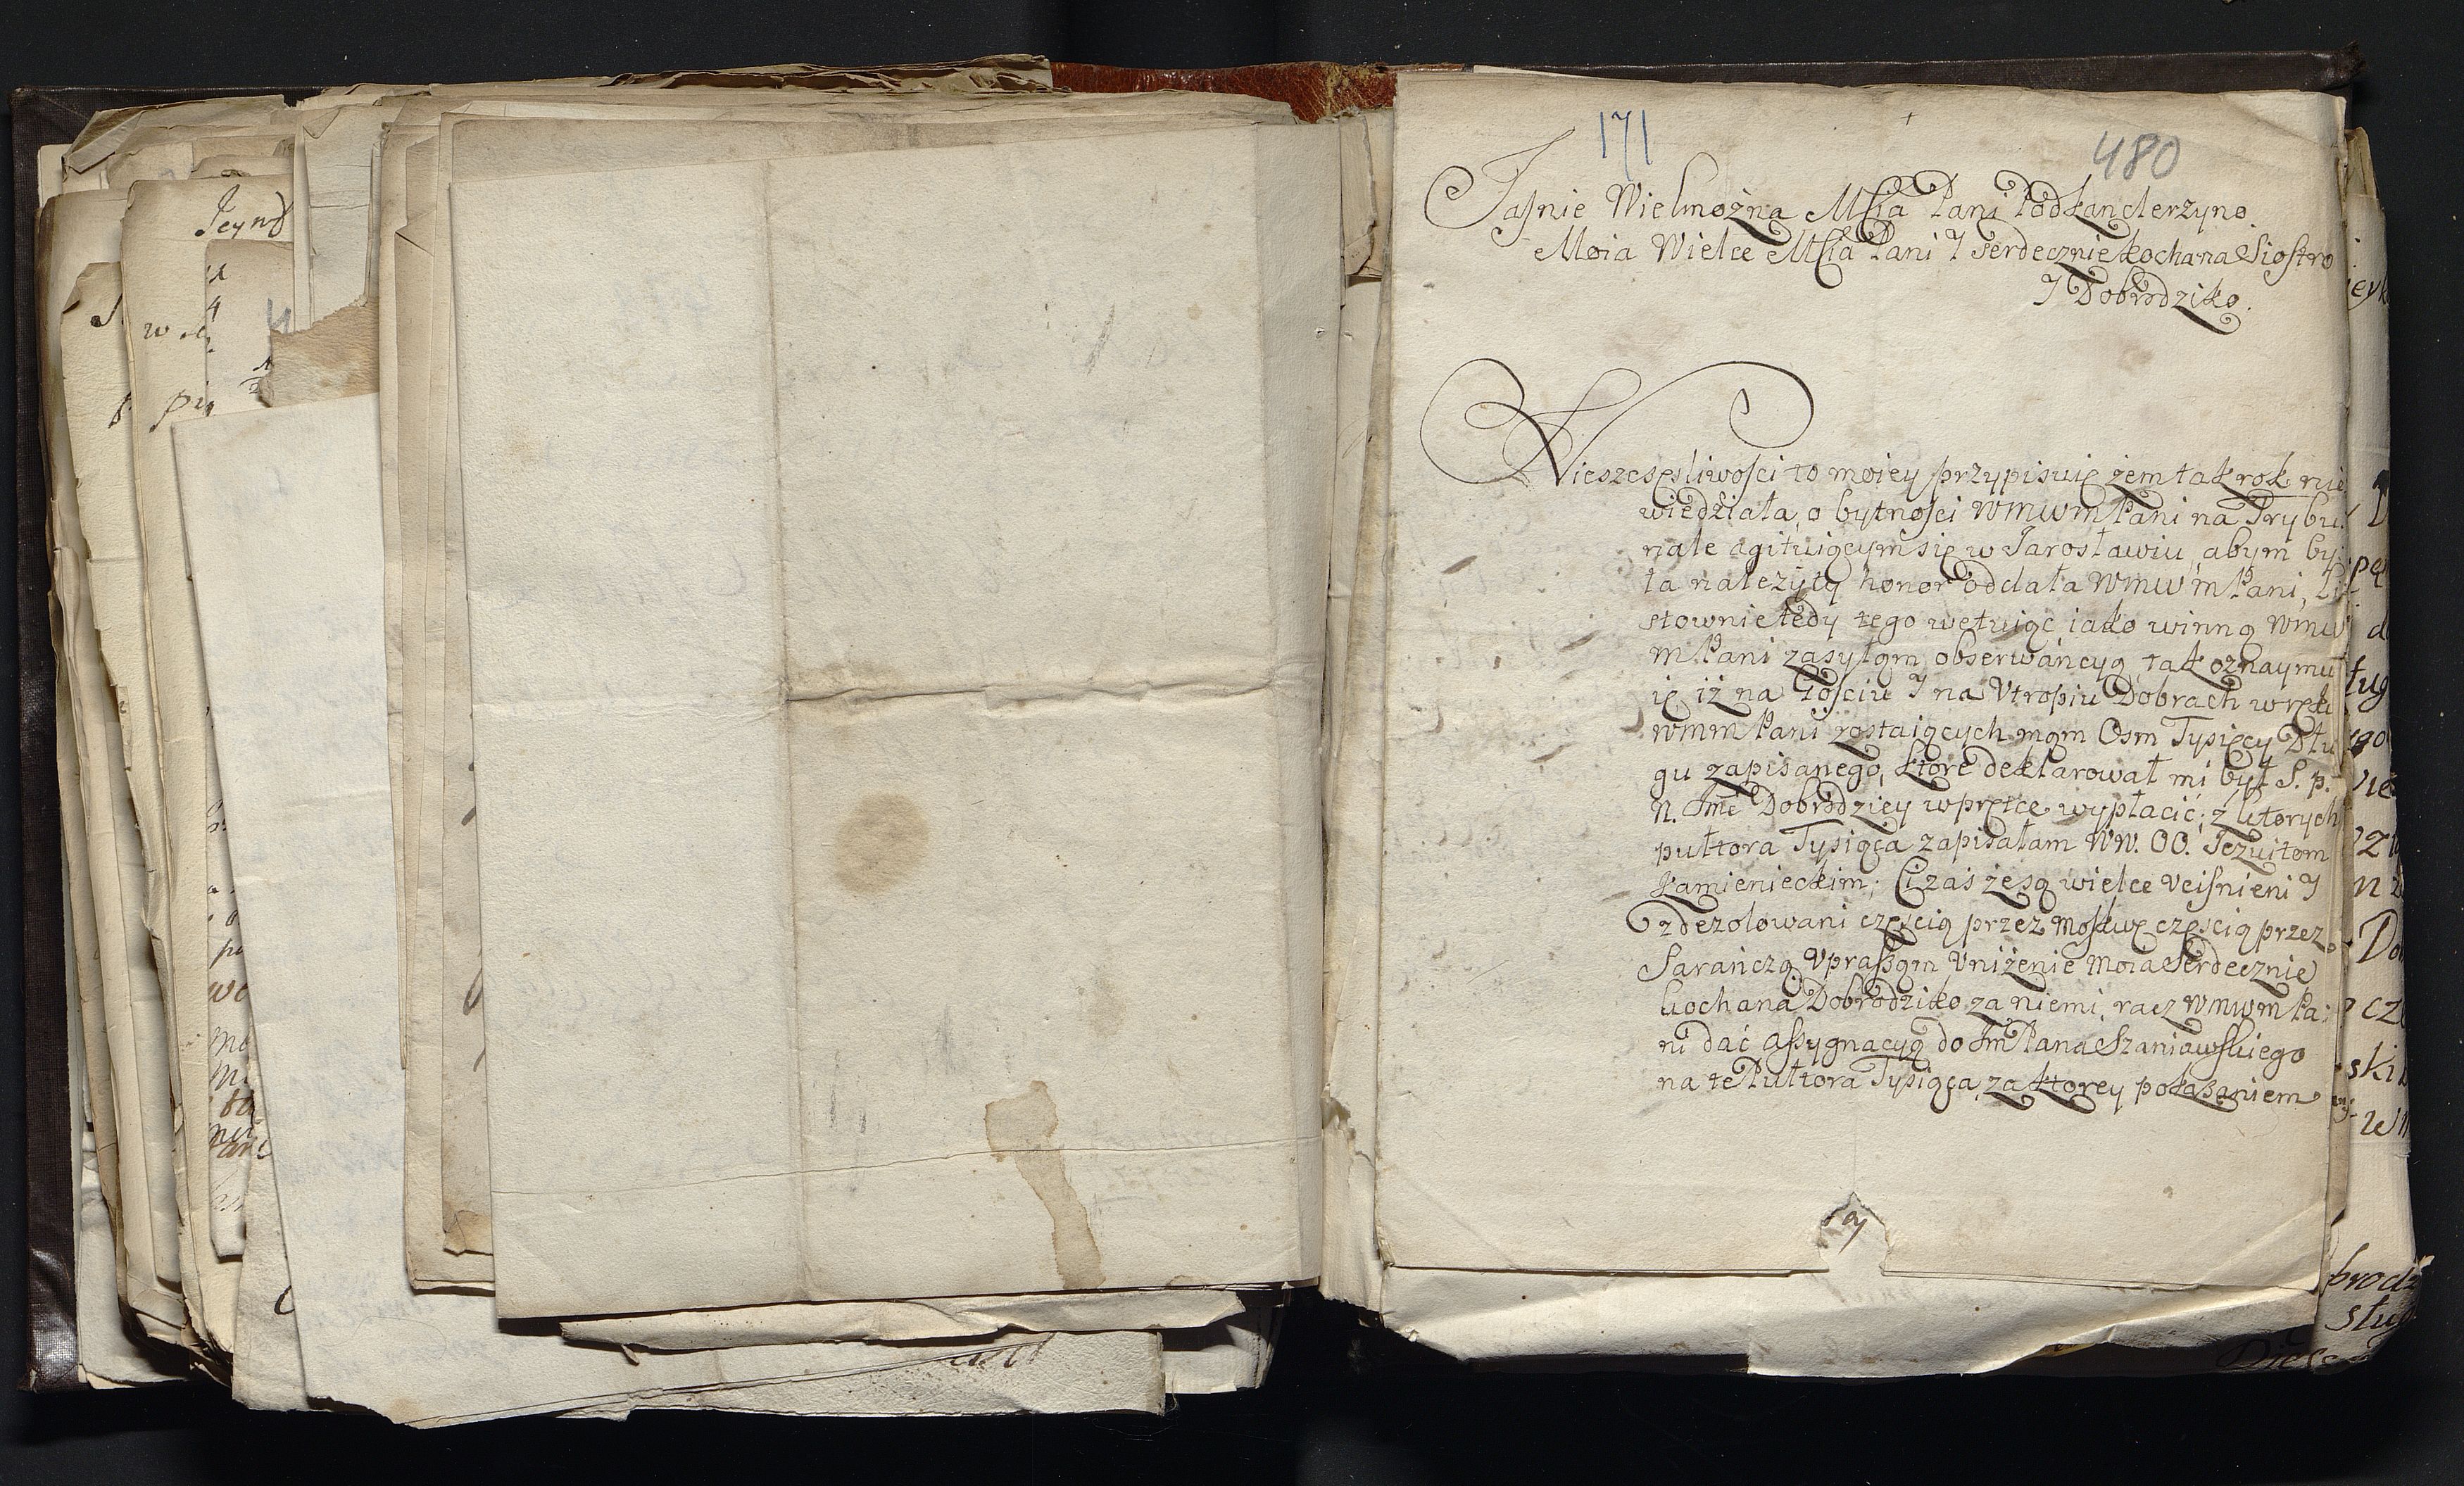 171
480
Jaśnie Wielmożna Mścia Pani Podkanclerzyno
Moia Wielce Mścia Pani I serdecznie kochana Siostro
I Dobrodziko.
Nieszczęsliwości to moiey przypisuię żem tak rok nie
wiedziała, o bytności WMWM Pani na Trybu:
nale agituiącym się w Jarosławiu, abym by:
ła należyty honor oddała WMWM Pani, Li
stownie tedy tego wetuiąc iako winną WMW
M Pani zasyłąm obserwancyą, tak oznaymu
ię, iż na Tosciu I na Vtropiu Dobrach w ręku
WMM Pani zostaiących mąm Osm Tysięcy Dłu
gu zapisanego, ktore deklarował mi był S. p.
N. Jmć Dobrodziey wprętce wypłacić; z ktorych
pułtora Tysiąca zapisałam WW. OO. Jezuitom
Kamienieckim; Ci zaś że są wielce vcisnieni I
zdezolowani częscią przez Moskwę częscią przez
Sarańczą, vprasząm vniżenie moia Serdecznie
kochana Dobrodziko za niemi, racz WMWM Pa:
ni dać assygnacyą do Jm Pana Szaniawskiego
na te Pułtora Tysiąca, za ktorey pokazaniem